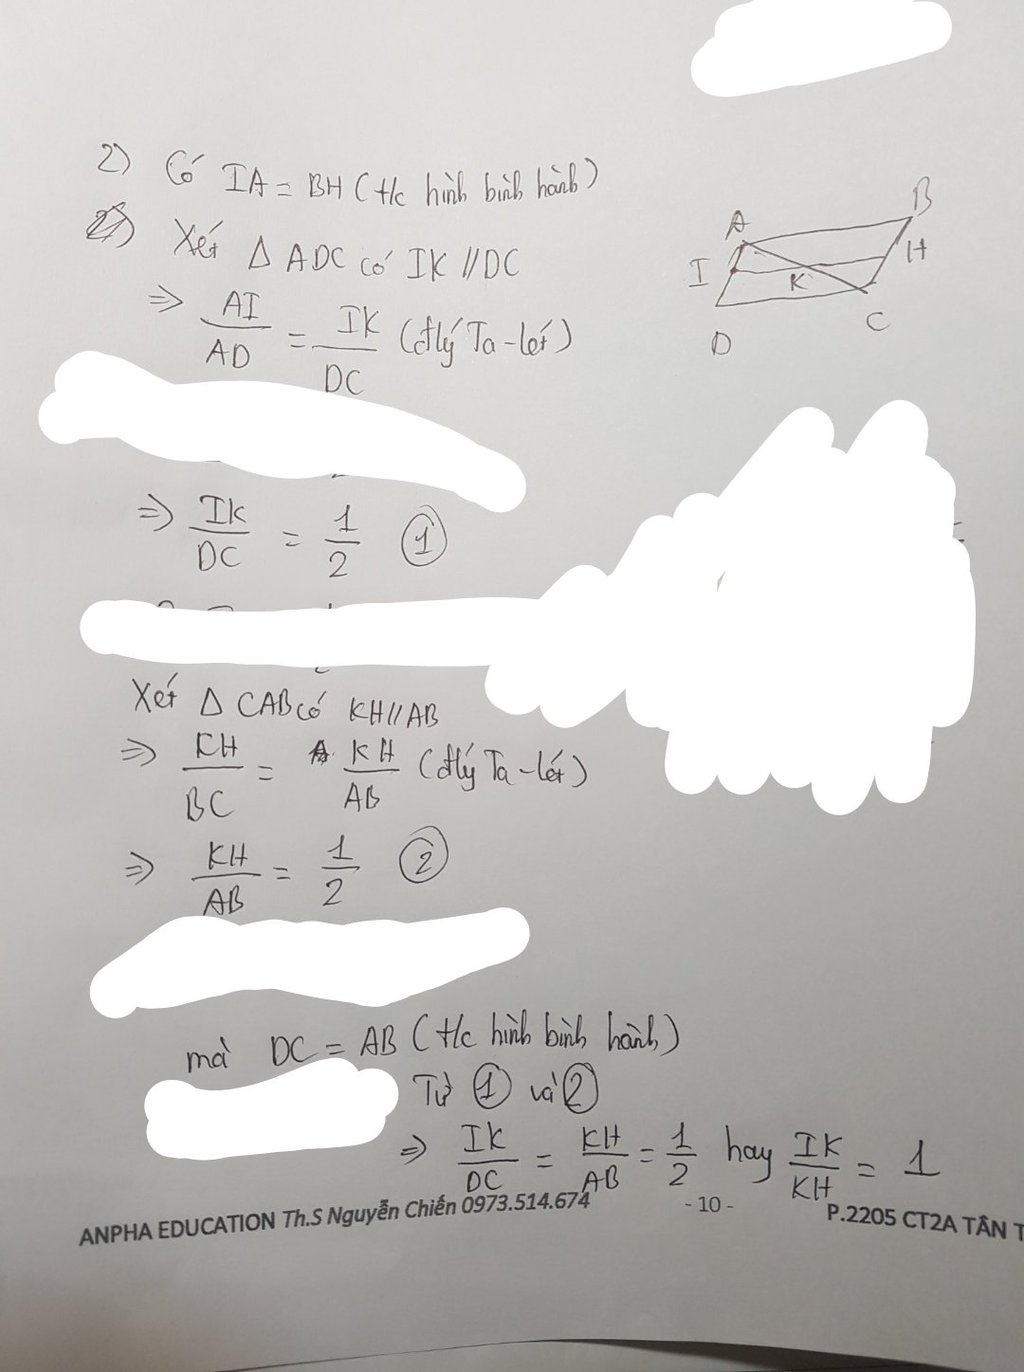 2) Có IA = BH (t/c hình bình hành)
Xét Δ ADC có IK // DC
=> AI/AD = IK/DC (đlý Ta-lét)
=> IK/DC = 1/2 ①
Xét Δ CAB có KH // AB
=> KH/BC = KH/AB (đlý Ta-lét)
=> KH/AB = 1/2 ②
mà DC = AB (t/c hình bình hành)
Từ ① và ②
=> IK/DC = KH/AB = 1/2 hay IK/KH = 1
A
B
I
H
K
D
C
ANPHA EDUCATION Th.S Nguyễn Chiến 0973.514.674 - 10 - P.2205 CT2A TÂN